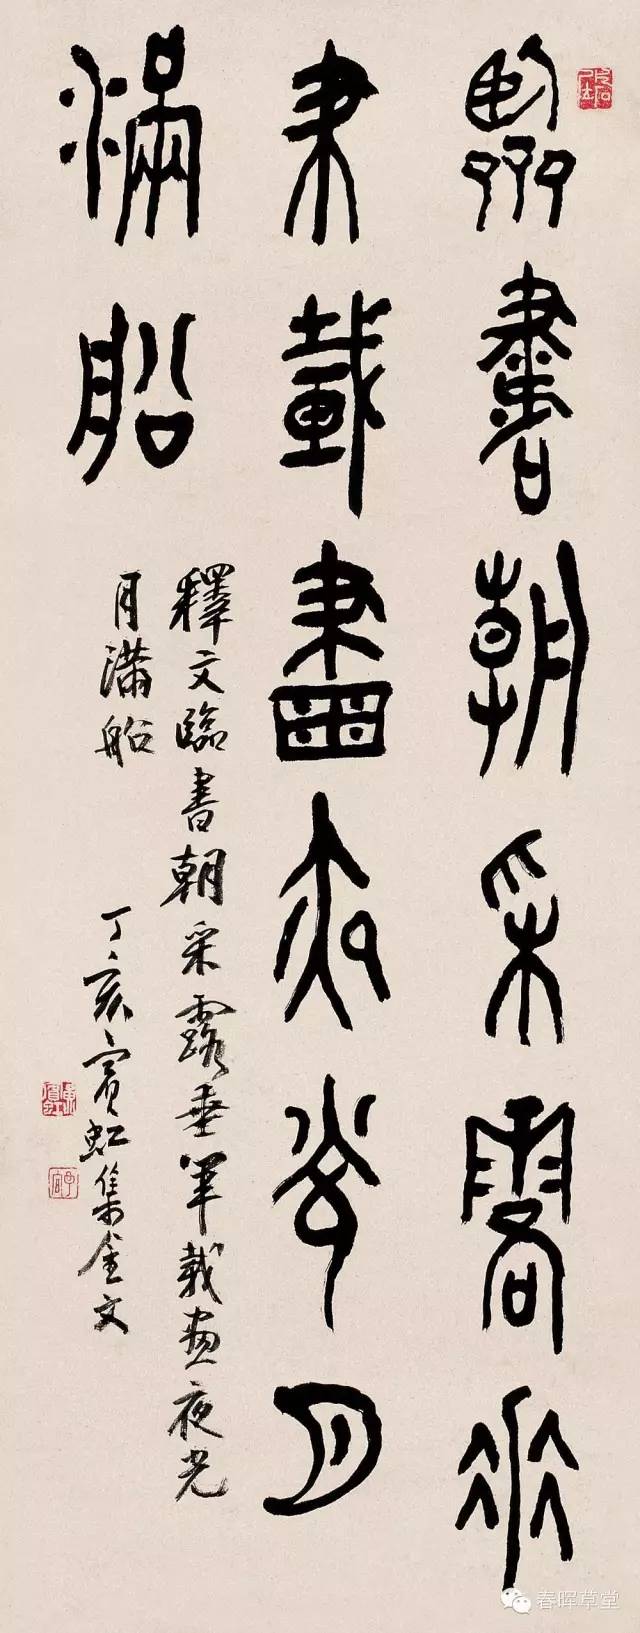 臨書朝采露垂
筆載畫夜光月
滿船
釋文臨書朝采露垂筆載畫夜光
月滿船
丁亥賓虹集金文
春晖草堂